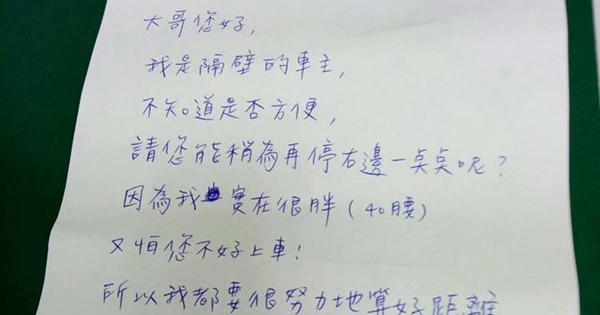 大哥您好,
我是隔壁的車主,
不知道是否方便,
請您能稍為再停右邊一點點呢?
因為我實在很胖(40腰)
又怕您不好上車!
所以我都要很努力地算好距離